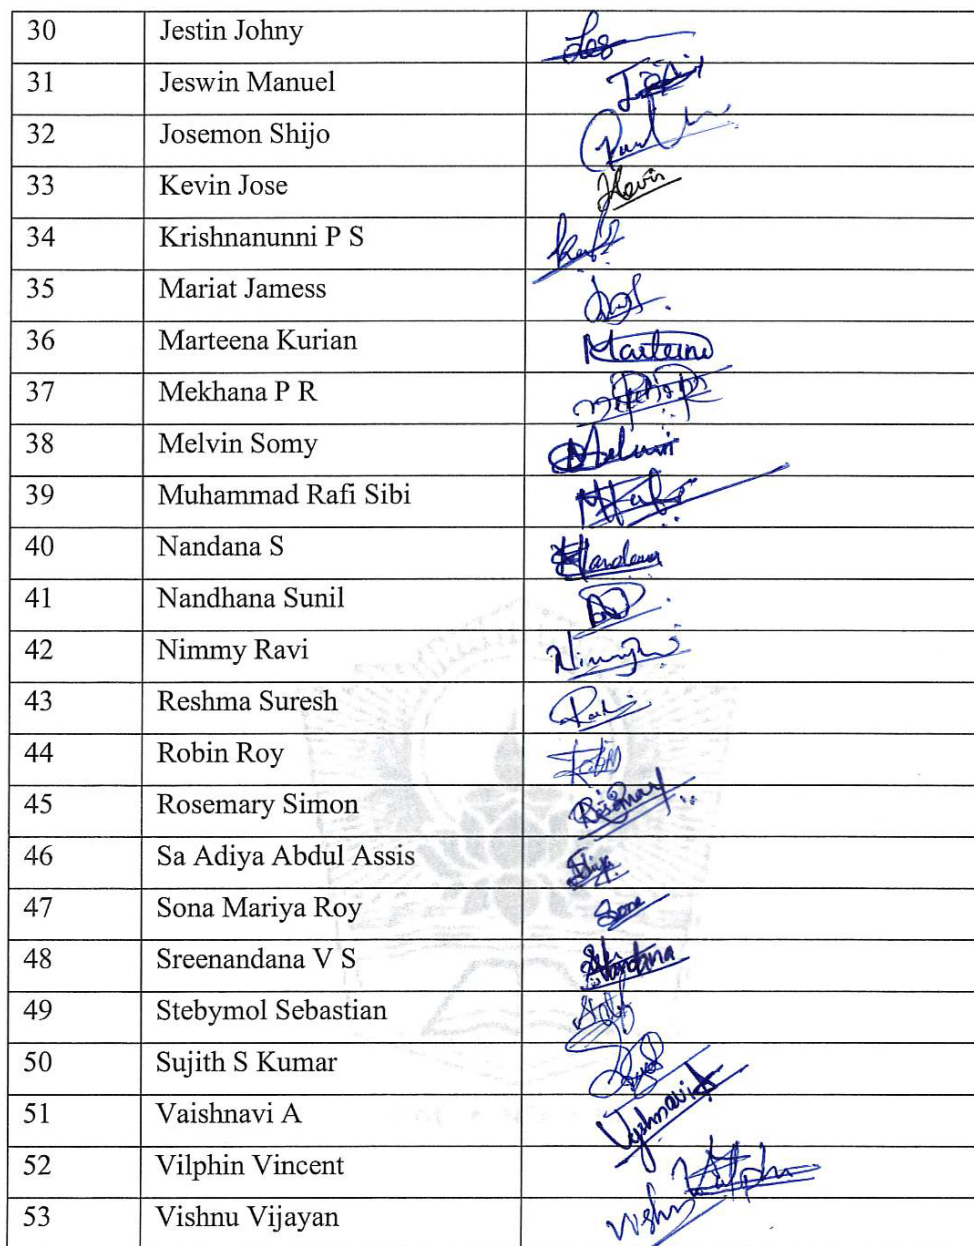 30 Jestin Johny
31 Jeswin Manuel
32 Josemon Shijo
33 Kevin Jose Kevin
34 Krishnanunni P S
35 Mariat Jamess
36 Marteena Kurian Marteena
37 Mekhana P R
38 Melvin Somy Melvin
39 Muhammad Rafi Sibi
40 Nandana S Nandana
41 Nandhana Sunil
42 Nimmy Ravi
43 Reshma Suresh
44 Robin Roy Robin
45 Rosemary Simon Rosemary
46 Sa Adiya Abdul Assis
47 Sona Mariya Roy Sona
48 Sreenandana V S
49 Stebymol Sebastian
50 Sujith S Kumar
51 Vaishnavi A Vyshnavi A
52 Vilphin Vincent
53 Vishnu Vijayan Vishnu